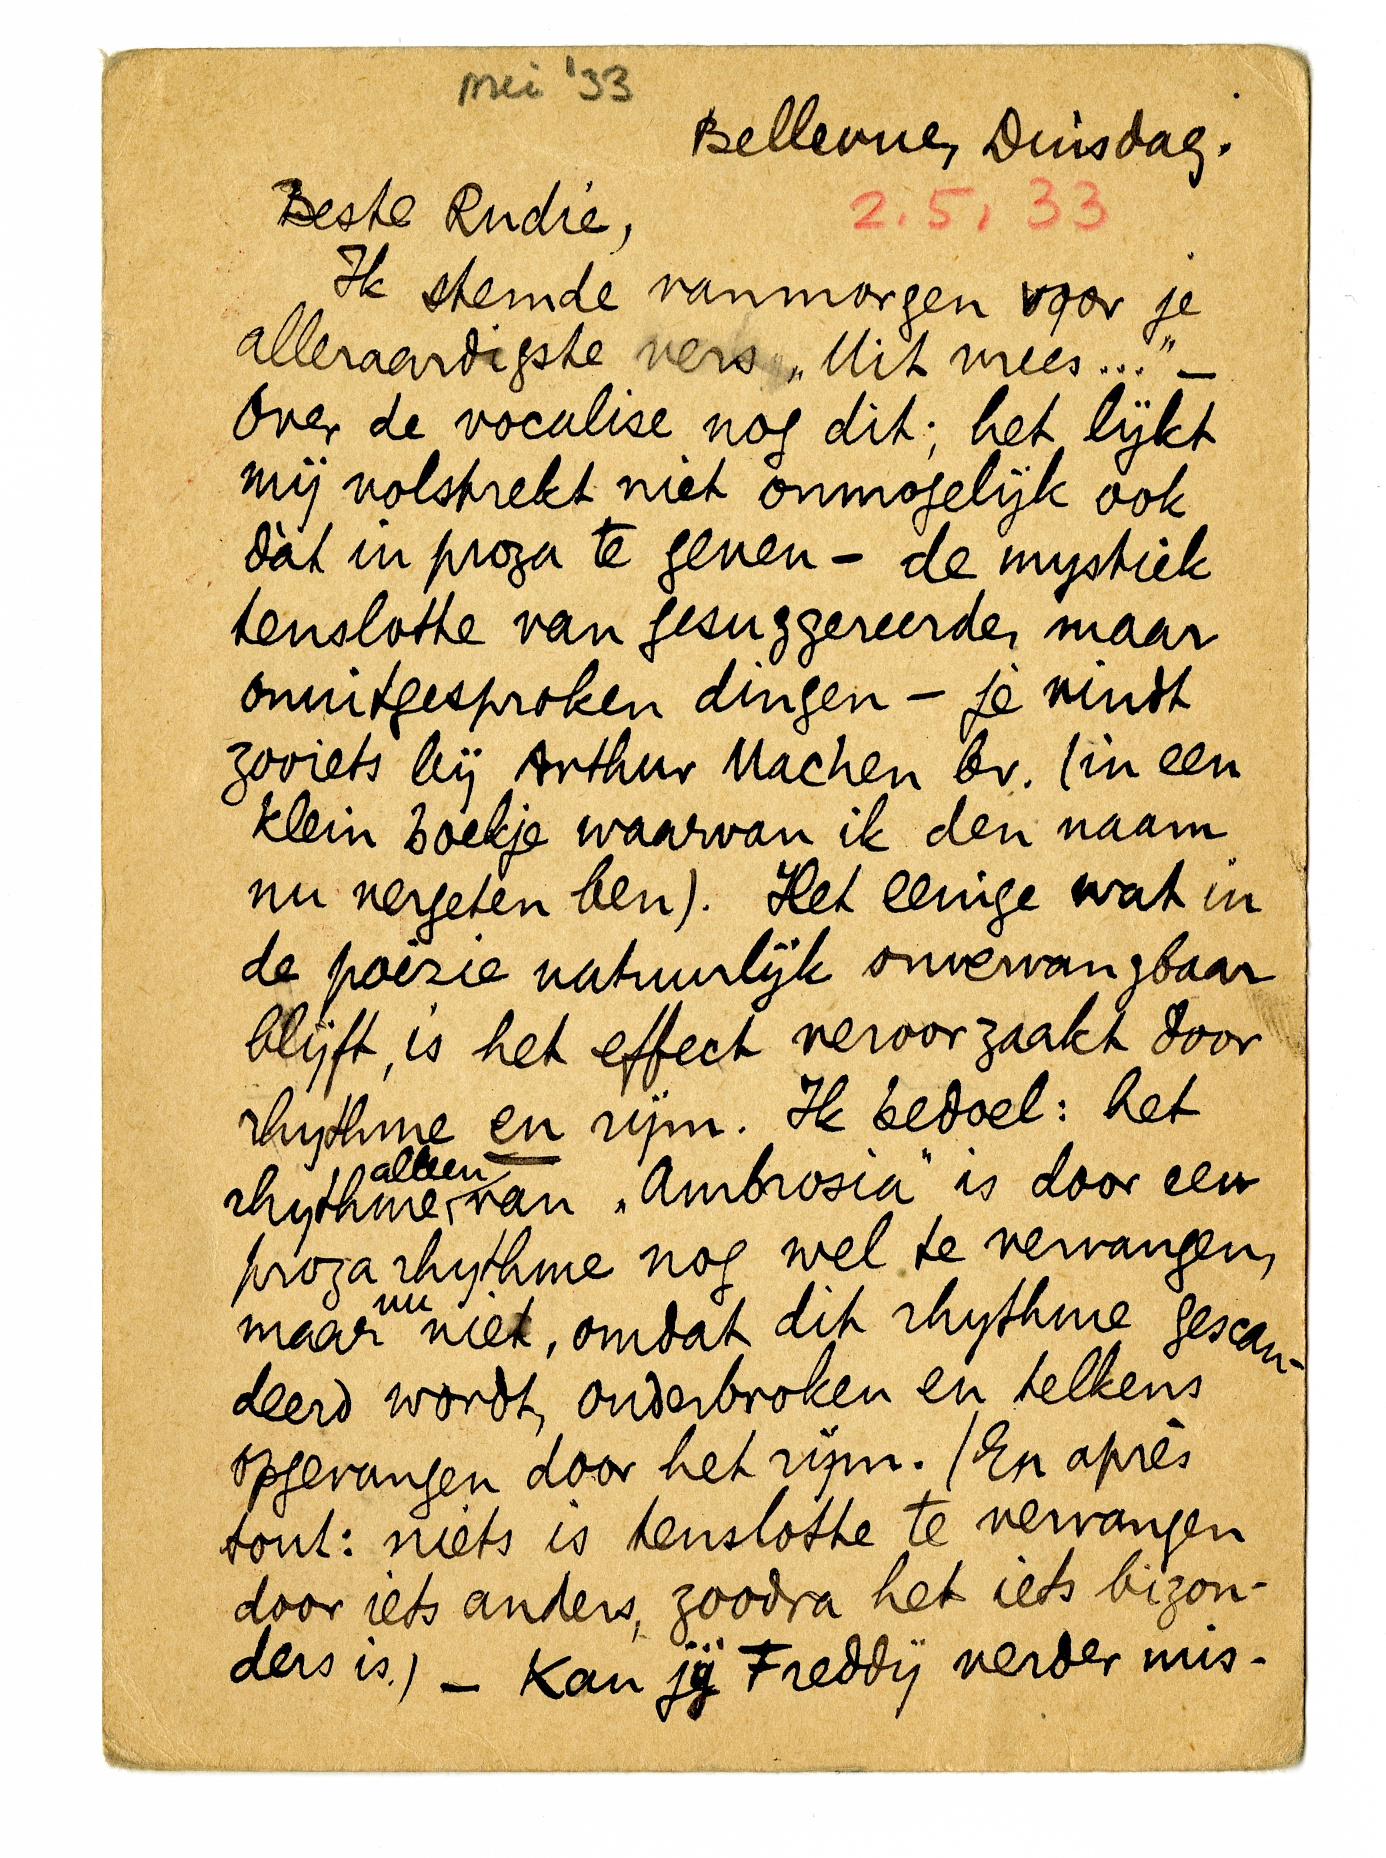 mei '33
Bellevue, Dinsdag.
2.5.33
Beste Rudie,
Ik stemde vanmorgen voor je
alleraardigste vers „Uit vrees..." —
Over de vocalise nog dit; het lijkt
mij volstrekt niet onmogelijk ook
dàt in proza te geven — de mystiek
tenslotte van gesuggereerde, maar
onuitgesproken dingen — je vindt
zooiets bij Arthur Machen bv. (in een
klein boekje waarvan ik den naam
nu vergeten ben). Het eenige wat in
de poëzie natuurlijk onvervangbaar
blijft, is het effect veroorzaakt door
rhythme en rijm. Ik bedoel: het
rhythme alleen van „Ambrosia" is door een
proza rhythme nog wel te vervangen,
maar nu niet, omdat dit rhythme gescan-
deerd wordt, onderbroken en telkens
opgevangen door het rijm. (En après
tout: niets is tenslotte te vervangen
door iets anders, zoodra het iets bizon-
ders is.) — Kan jij Freddy verder mis-